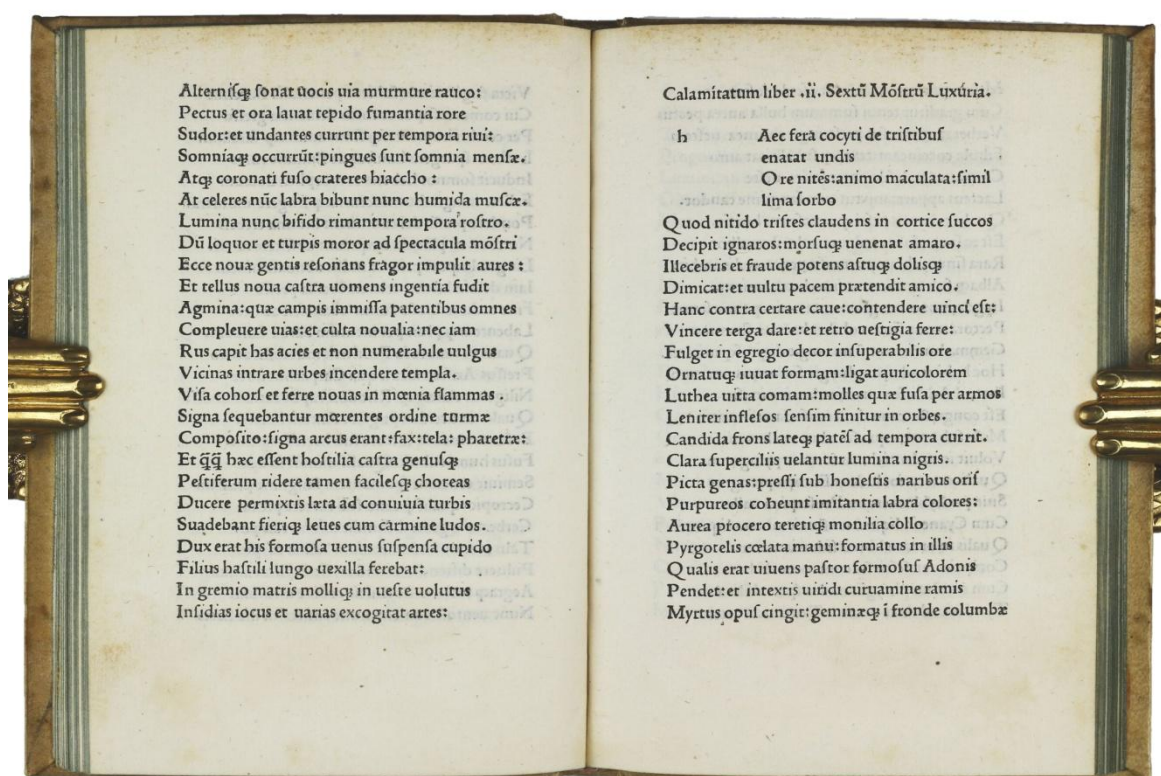 Alterniſqꝫ ſonat uocis uia murmure rauco:
Pectus et ora lauat tepido fumantia rore
Sudor:et undantes currunt per tempora riui:
Somniaqꝫ occurrũt:pingues ſunt ſomnia menſæ.
Atqꝫ coronati fuſo crateres hiaccho :
At celeres nũc labra bibunt nunc humida muſcæ.
Lumina nunc bifido rimantur tempora roſtro.
Dũ loquor et turpis moror ad ſpectacula mõſtri
Ecce nouæ gentis reſonans fragor impulit aures :
Et tellus noua caſtra uomens ingentia fudit
Agmina:quæ campis immiſſa patentibus omnes
Compleuere uias:et culta noualia:nec iam
Rus capit has acies et non numerabile uulgus
Vicinas intrare urbes incendere templa.
Viſa cohorſ et ferre nouas in mœnia flammas .
Signa ſequebantur mœrentes ordine turmæ
Compoſito:ſigna arcus erant:fax:tela: pharetræ:
Et q̃q̃ hæc eſſent hoſtilia caſtra genuſqꝫ
Peſtiferum ridere tamen facileſqꝫ choreas
Ducere permixtis læta ad conuiuia turbis
Suadebant fieriqꝫ leues cum carmine ludos.
Dux erat his formoſa uenus ſuſpenſa cupido
Filius haſtili lungo uexilla ferebat:
In gremio matris molliqꝫ in ueſte uolutus
Inſidias iocus et uarias excogitat artes:
Calamitatum liber .ii. Sextũ Mõſtrũ Luxuria.
h Aec fera cocyti de triſtibuſ
enatat undis
Ore nitẽs:animo maculata:ſimil
lima ſorbo
Quod nitido triſtes claudens in cortice ſuccos
Decipit ignaros:morſuqꝫ uenenat amaro.
Illecebris et fraude potens aſtuqꝫ doliſqꝫ
Dimicat:et uultu pacem prætendit amico.
Hanc contra certare caue:contendere uinci eſt:
Vincere terga dare:et retro ueſtigia ferre:
Fulget in egregio decor inſuperabilis ore
Ornatuqꝫ iuuat formam:ligat auricolorem
Luthea uitta comam:molles quæ fuſa per armos
Leniter infleſos ſenſim finitur in orbes.
Candida frons lateqꝫ patẽſ ad tempora currit.
Clara ſuperciliis uelantur lumina nigris.
Picta genas:preſſi ſub honeſtis naribus oriſ
Purpureos coheunt imitantia labra colores:
Aurea procero teretiqꝫ monilia collo
Pyrgotelis cœlata manu:formatus in illis
Qualis erat uiuens paſtor formoſuſ Adonis
Pendet:et intextis uiridi curuamine ramis
Myrtus opuſ cingit:geminæqꝫ ĩ fronde columbæ